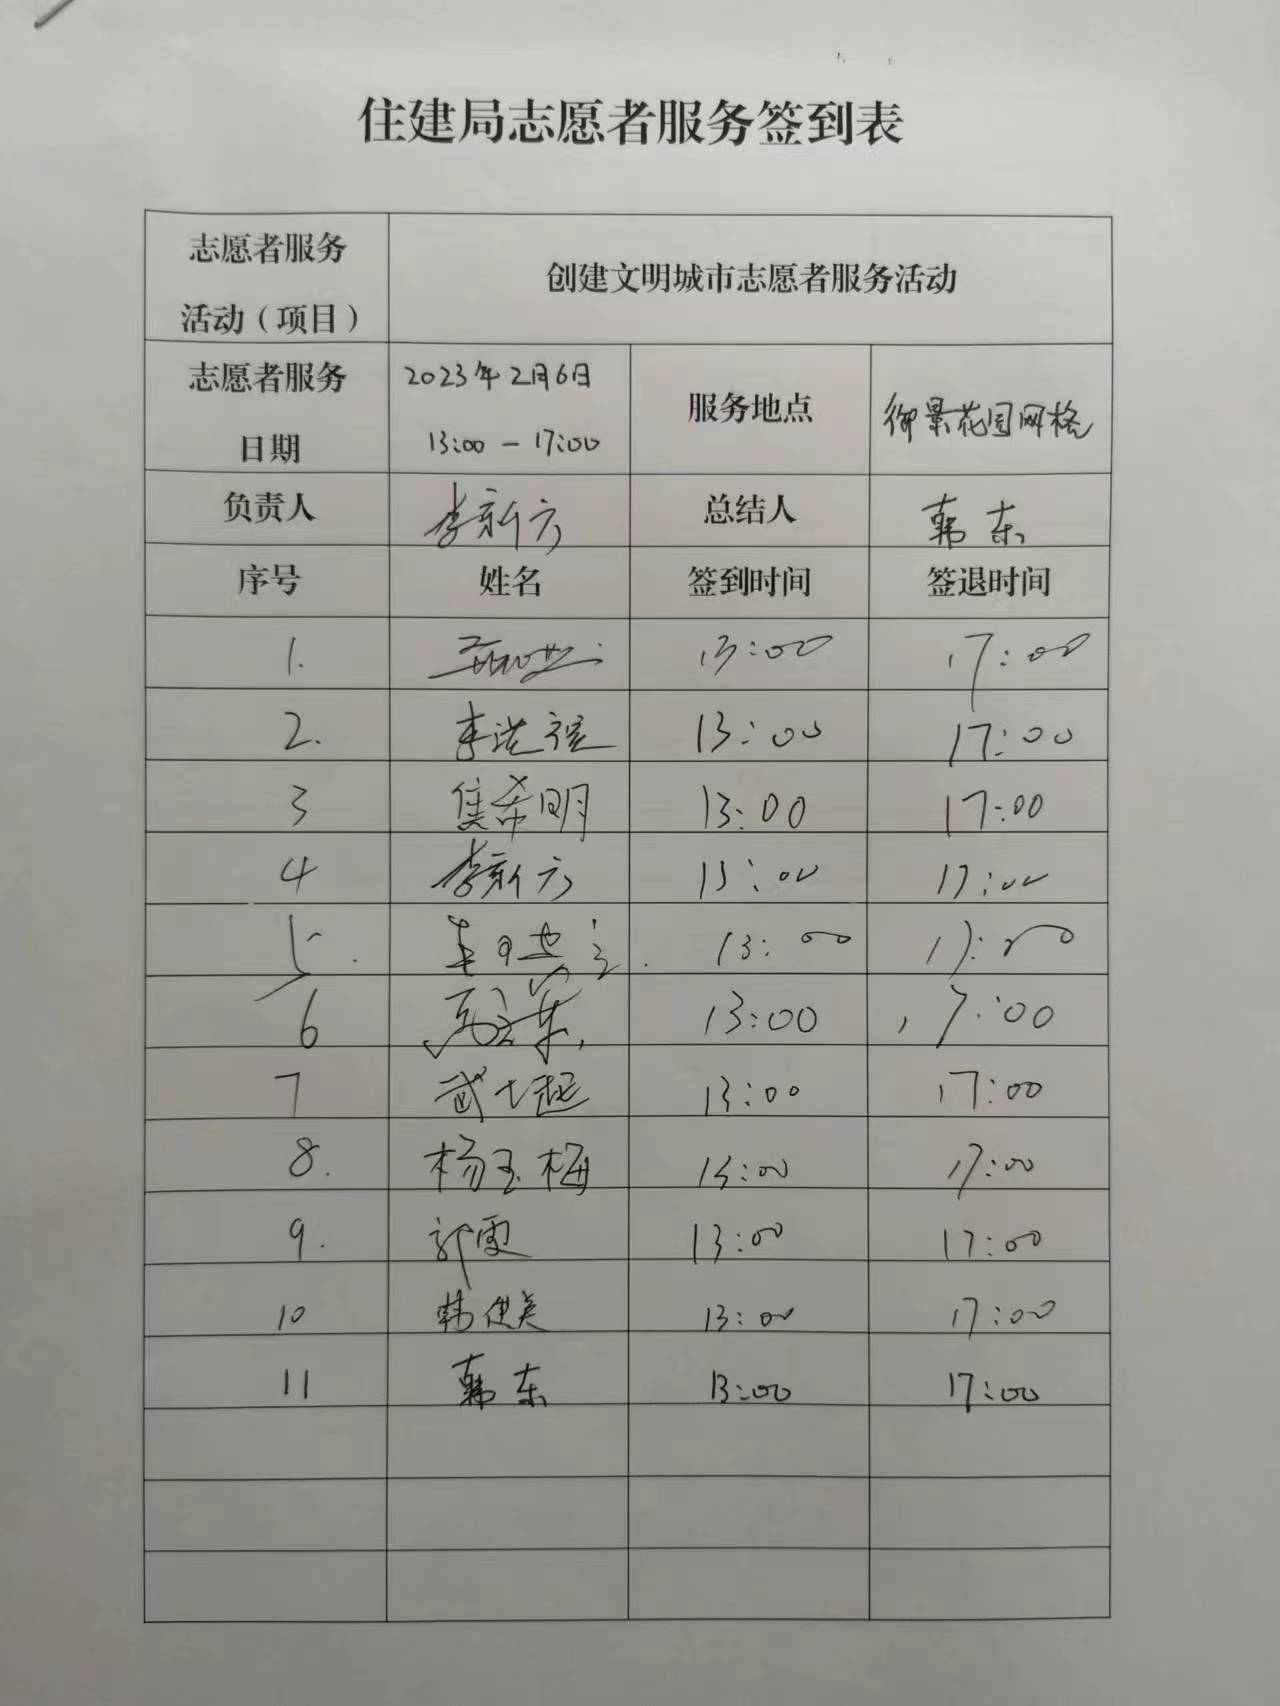 住建局志愿者服务签到表
志愿者服务
活动（项目）
创建文明城市志愿者服务活动
志愿者服务
日期
2023年2月6日
13:00－17:00
服务地点
御景花园网格
负责人
李新方
总结人
韩东
序号 姓名 签到时间 签退时间
1. 13:00 17:00
2. 13:00 17:00
3 焦希明 13:00 17:00
4 李新方 13:00 17:00
5. 13:00 17:00
6 13:00 17:00
7 13:00 17:00
8. 杨玉梅 13:00 17:00
9. 郭雯 13:00 17:00
10 13:00 17:00
11 韩东 13:00 17:00